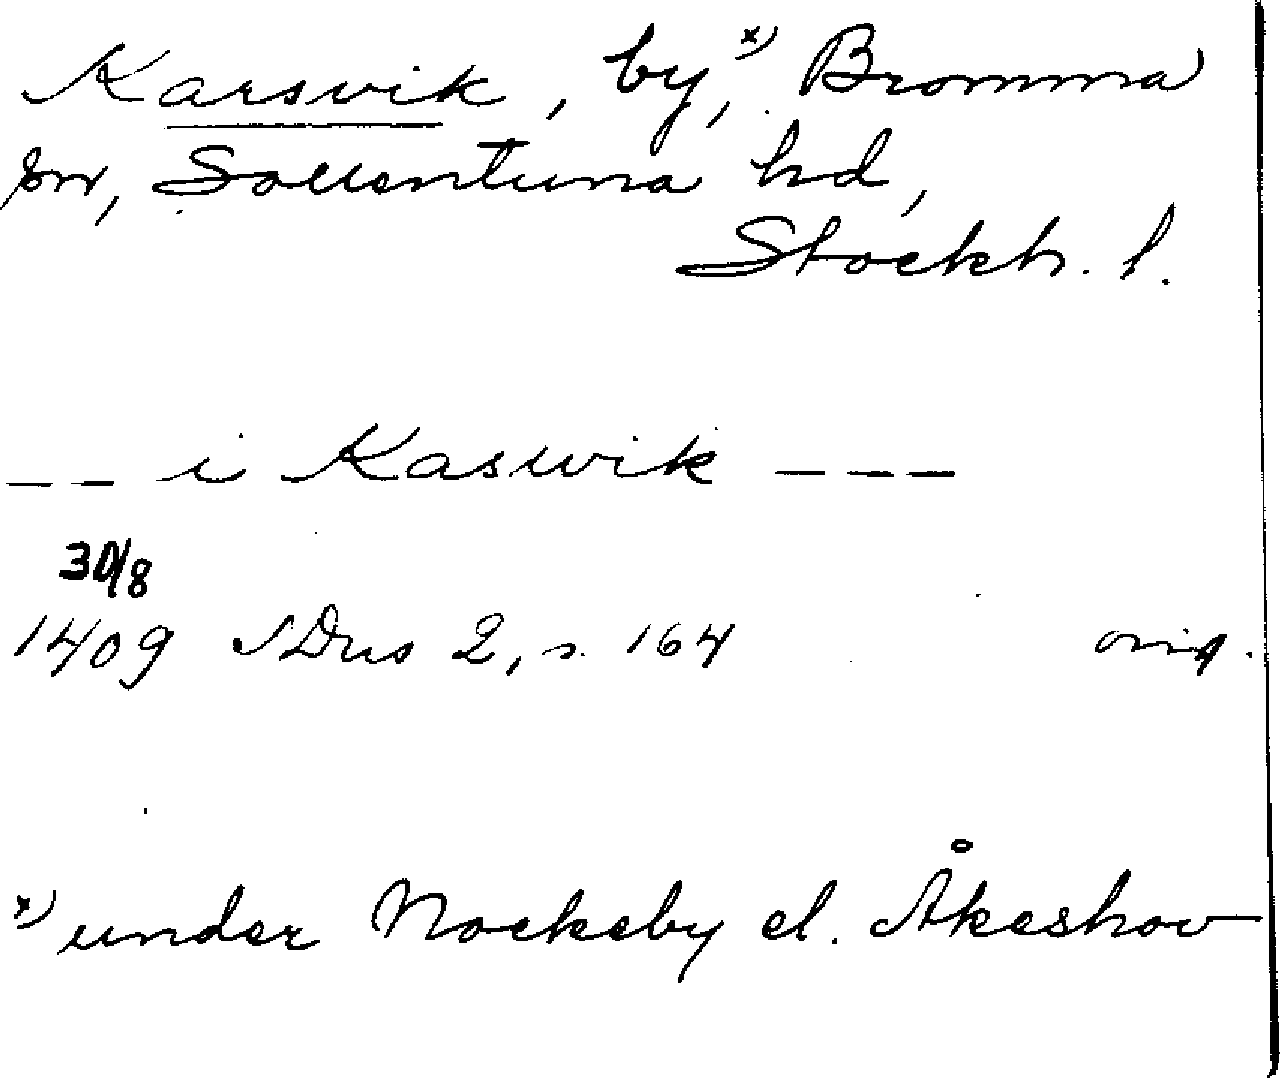 Karsvik, by,x) Bromma
sn, Sollentuna hd,
Stockh. l.
-- i Kaswik ---
30/8
1409 SDns 2, s. 164 orig.
x) under Nockeby el. Åkeshov